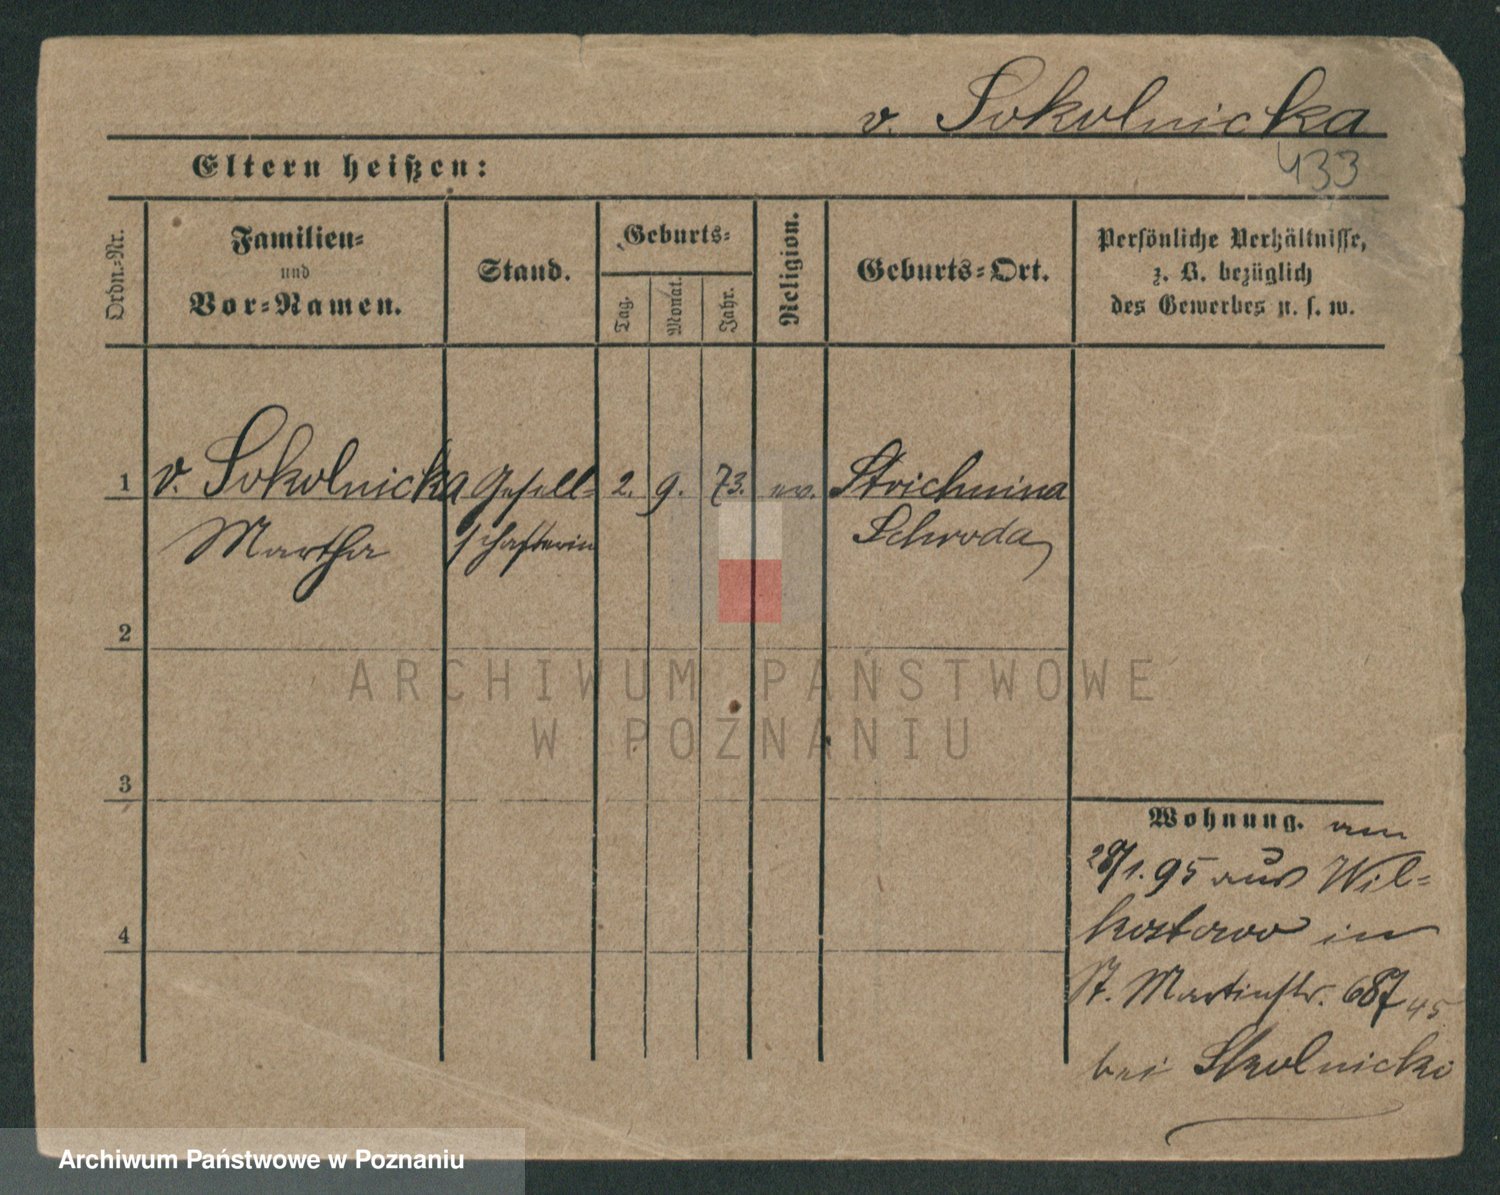 v. Sokolnicka
433
Eltern heißen:
Ordn.-Nr.
Familien-
und
Vor-Namen.
Stand.
Geburts-
Tag.
Monat.
Jahr.
Religion.
Geburts-Ort.
Persönliche Verhältnisse,
z. B. bezüglich
des Gewerbes u. s. w.
1 v. Sokolnicka Gesell- 2. 9. 73. ev. Strichnina
Martha schafterin Schroda
2
3
4
Wohnung. am
28/1. 95 aus Wil-
kostowo in
St. Martinstr. 687 45
bei Skolnicki
ARCHIWUM PAŃSTWOWE
W POZNANIU
Archiwum Państwowe w Poznaniu